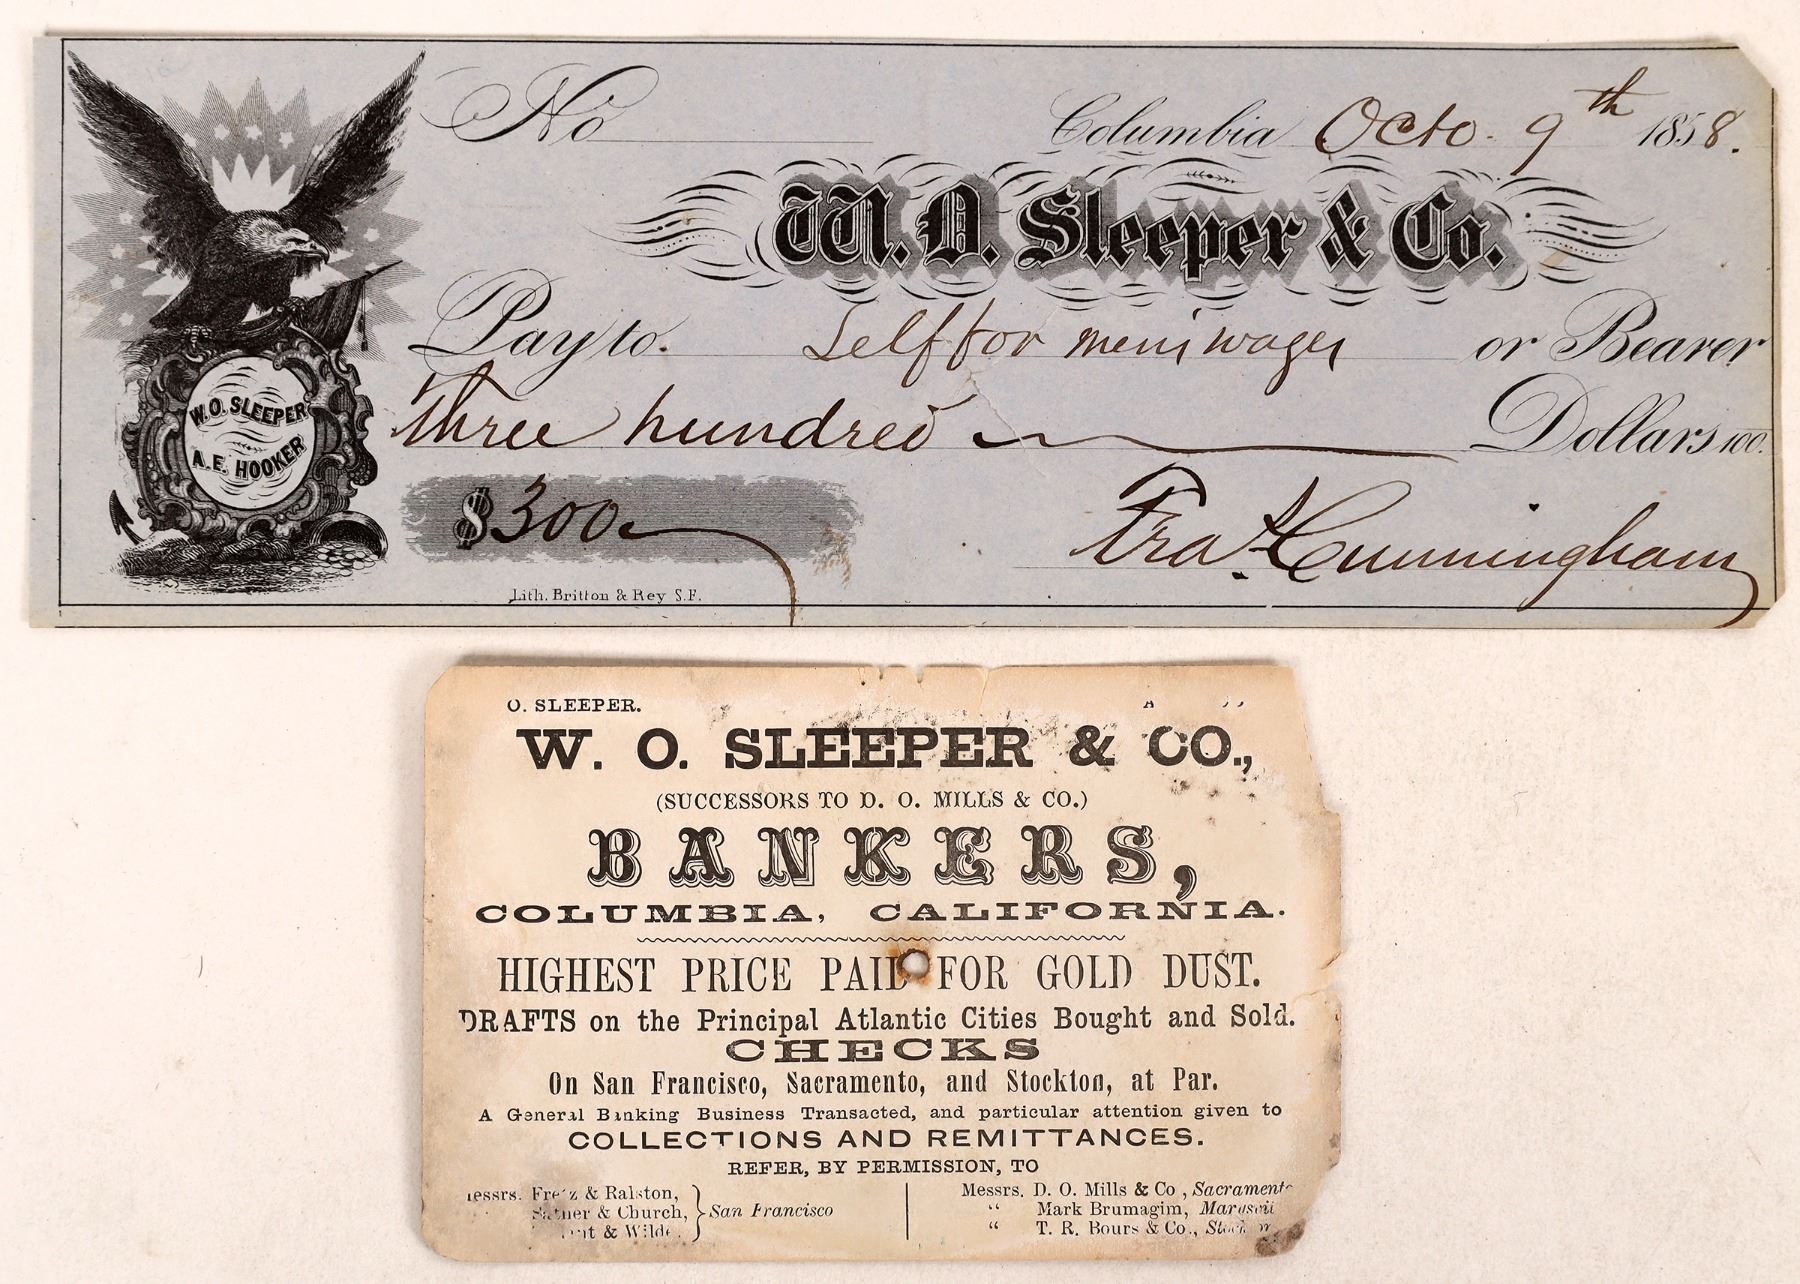 No
Columbia Octo. 9th 1858.
W. O. Sleeper & Co.
Pay to. Self for wages or Bearer
Three hundred Dollars 100.
W.O. SLEEPER
A.E. HOOKER
$300
Fra. A Cunningham
Lith. Britton & Rey S.F.
O. SLEEPER.
W. O. SLEEPER & CO.,
(SUCCESSORS TO D. O. MILLS & CO.)
BANKERS,
COLUMBIA, CALIFORNIA.
HIGHEST PRICE PAID FOR GOLD DUST.
DRAFTS on the Principal Atlantic Cities Bought and Sold.
CHECKS
On San Francisco, Sacramento, and Stockton, at Par.
A General Banking Business Transacted, and particular attention given to
COLLECTIONS AND REMITTANCES.
REFER, BY PERMISSION, TO
Messrs. Fretz & Ralston,
Sather & Church,
& Wilde.
San Francisco
Messrs. D. O. Mills & Co, Sacramento
" Mark Brumagim, Marysvil
" T. R. Bours & Co., Stock